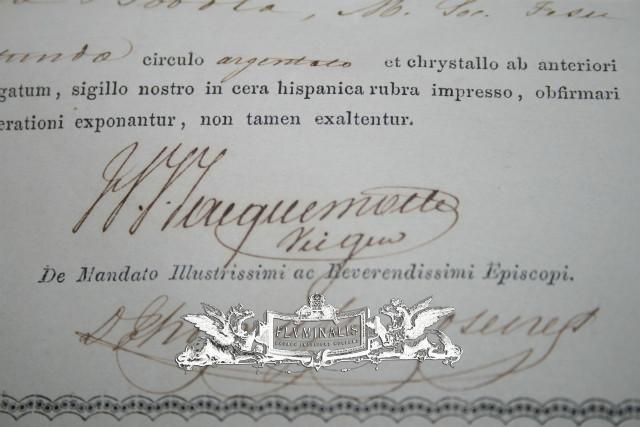 Bobola, M. Soc. Jesu
circulo argenteo et chrystallo ab anteriori
gatum, sigillo nostro in cera hispanica rubra impresso, obfirmari
erationi exponantur, non tamen exaltentur.
Jacquemotte
Vic gen
De Mandato Illustrissimi ac Reverendissimi Episcopi.
FLVMINALIS